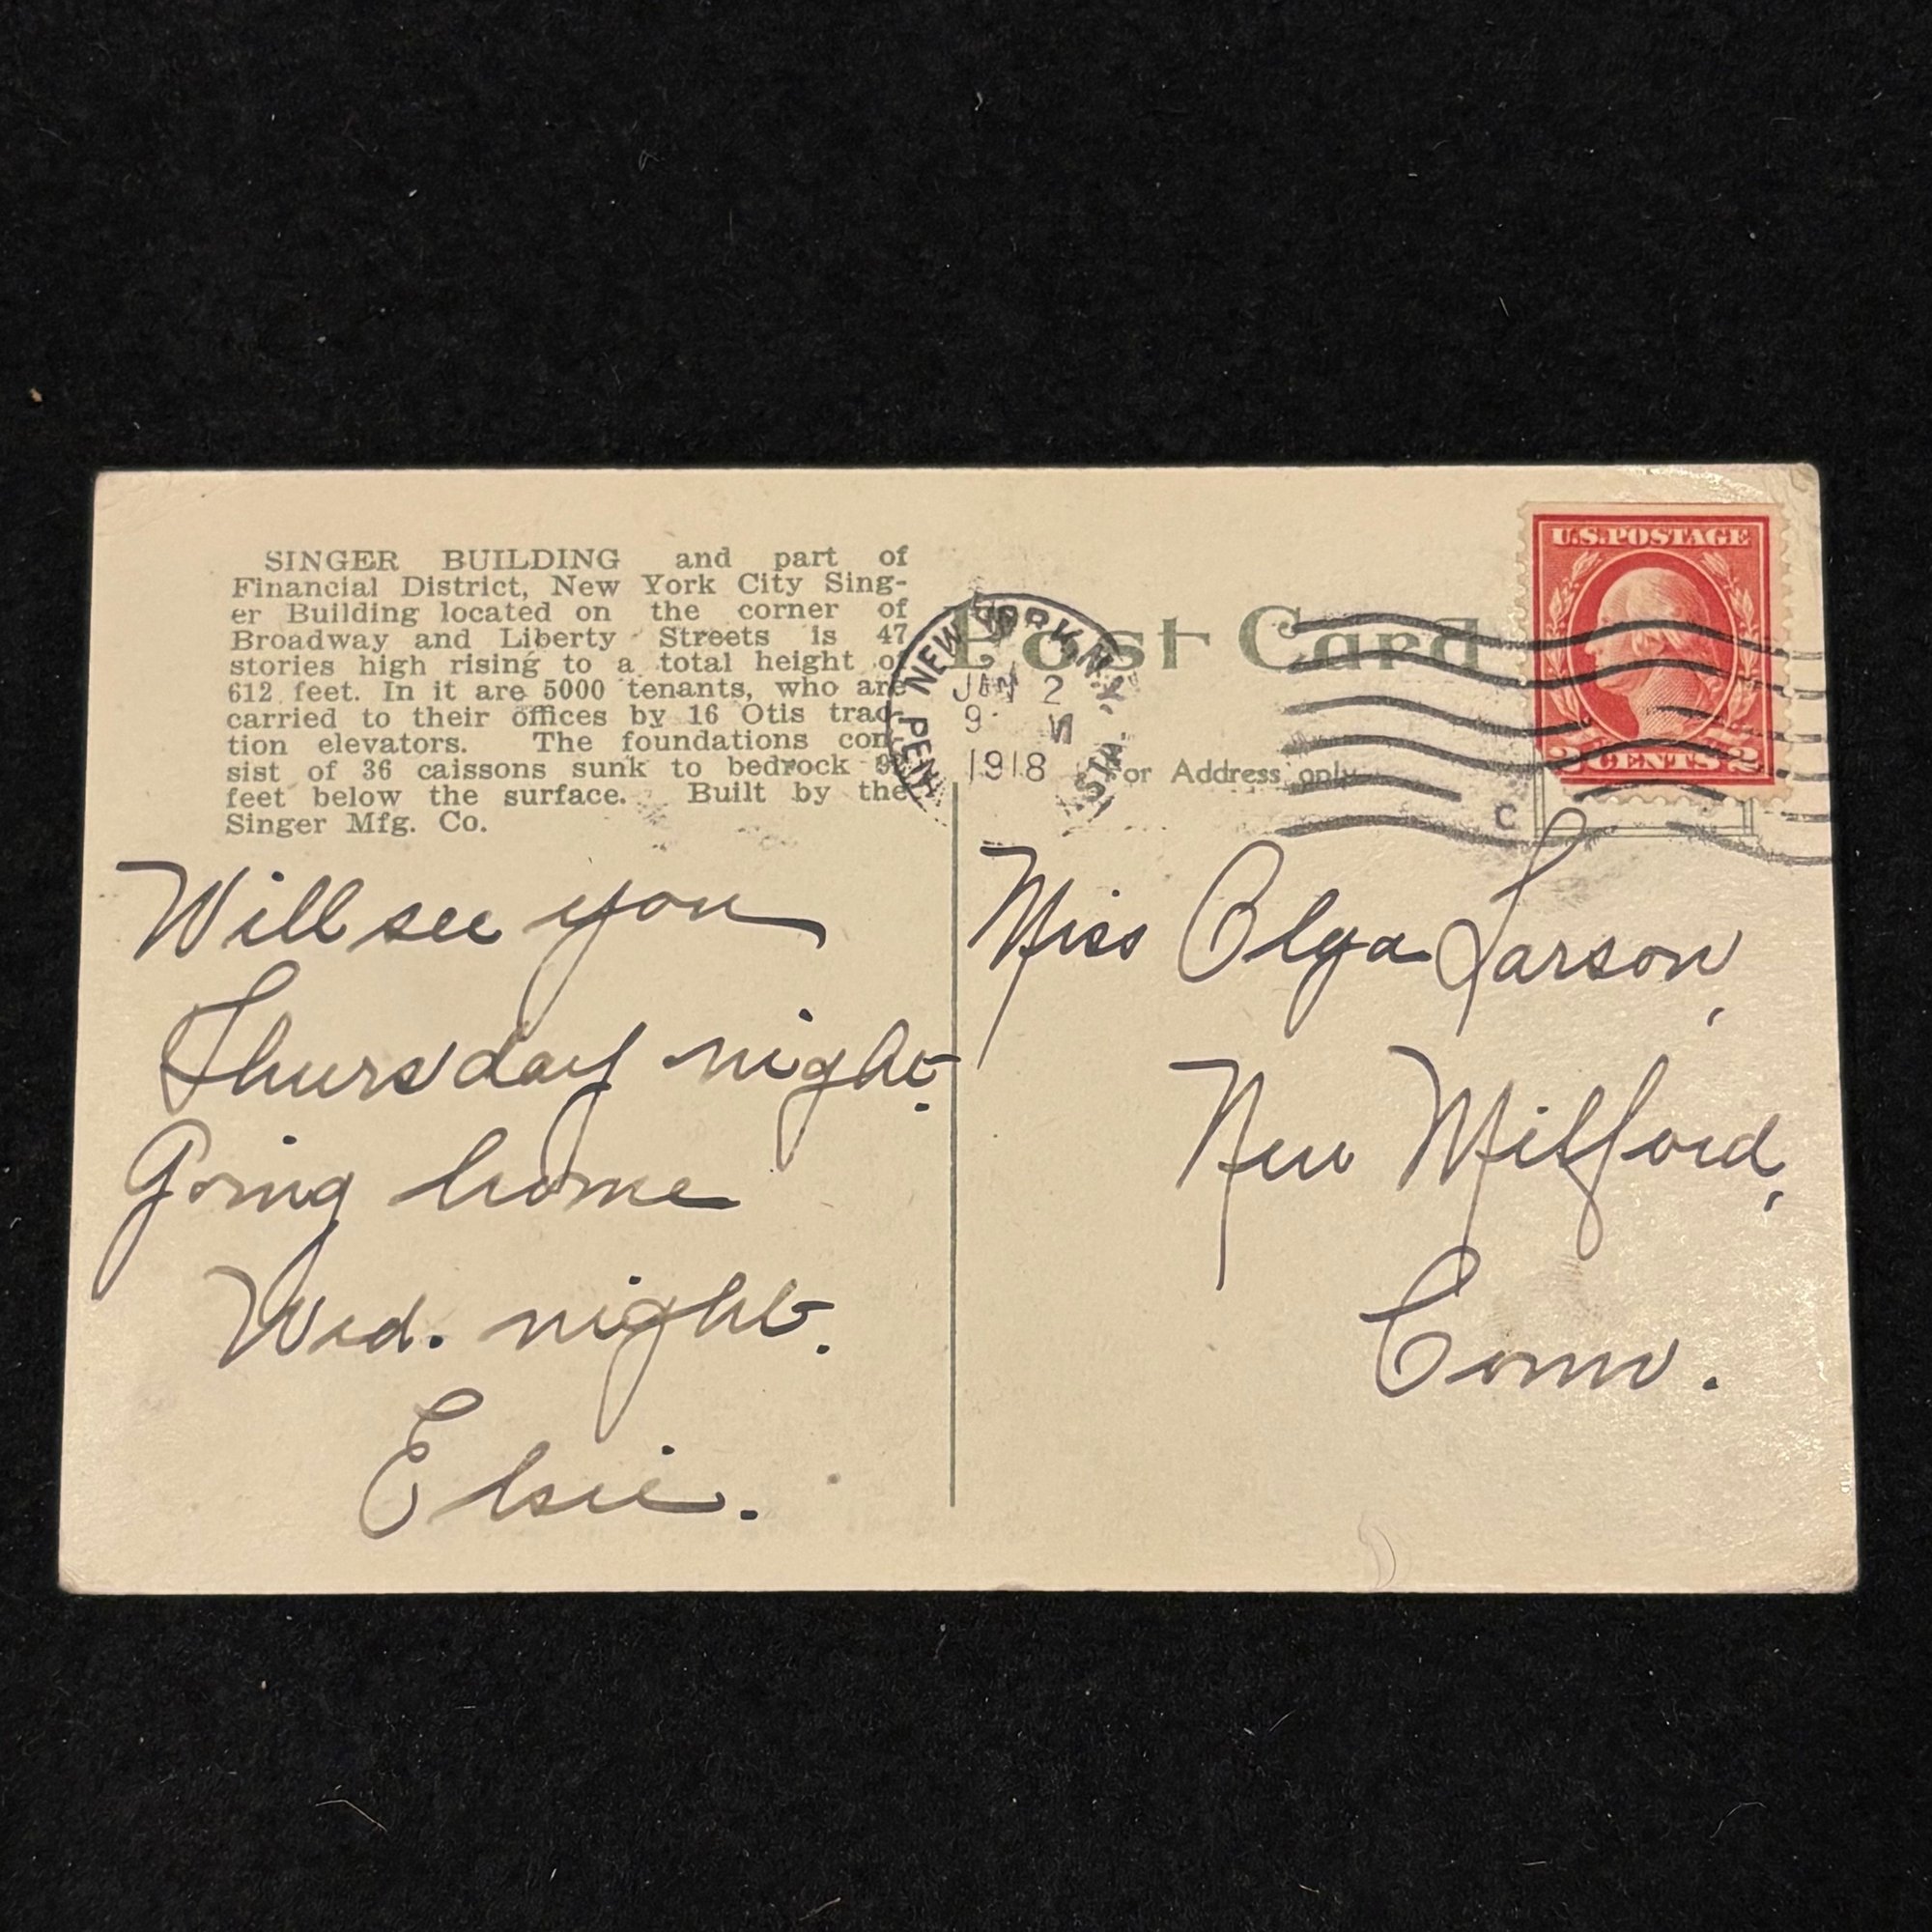 SINGER BUILDING and part of
Financial District, New York City Sing-
er Building located on the corner of
Broadway and Liberty Streets is 47
stories high rising to a total height of
612 feet. In it are 5000 tenants, who are
carried to their offices by 16 Otis trac-
tion elevators. The foundations con-
sist of 36 caissons sunk to bedrock
feet below the surface. Built by the
Singer Mfg. Co.
Will see you
Thursday night.
Going home
Wed. night.
Elsie.
Post Card
NEW YORK, N.Y.
PENN STA.
JAN 2
9
1918
For Address only
U.S. POSTAGE
2 CENTS 2
C
Miss Olga Larson,
New Milford,
Conn.